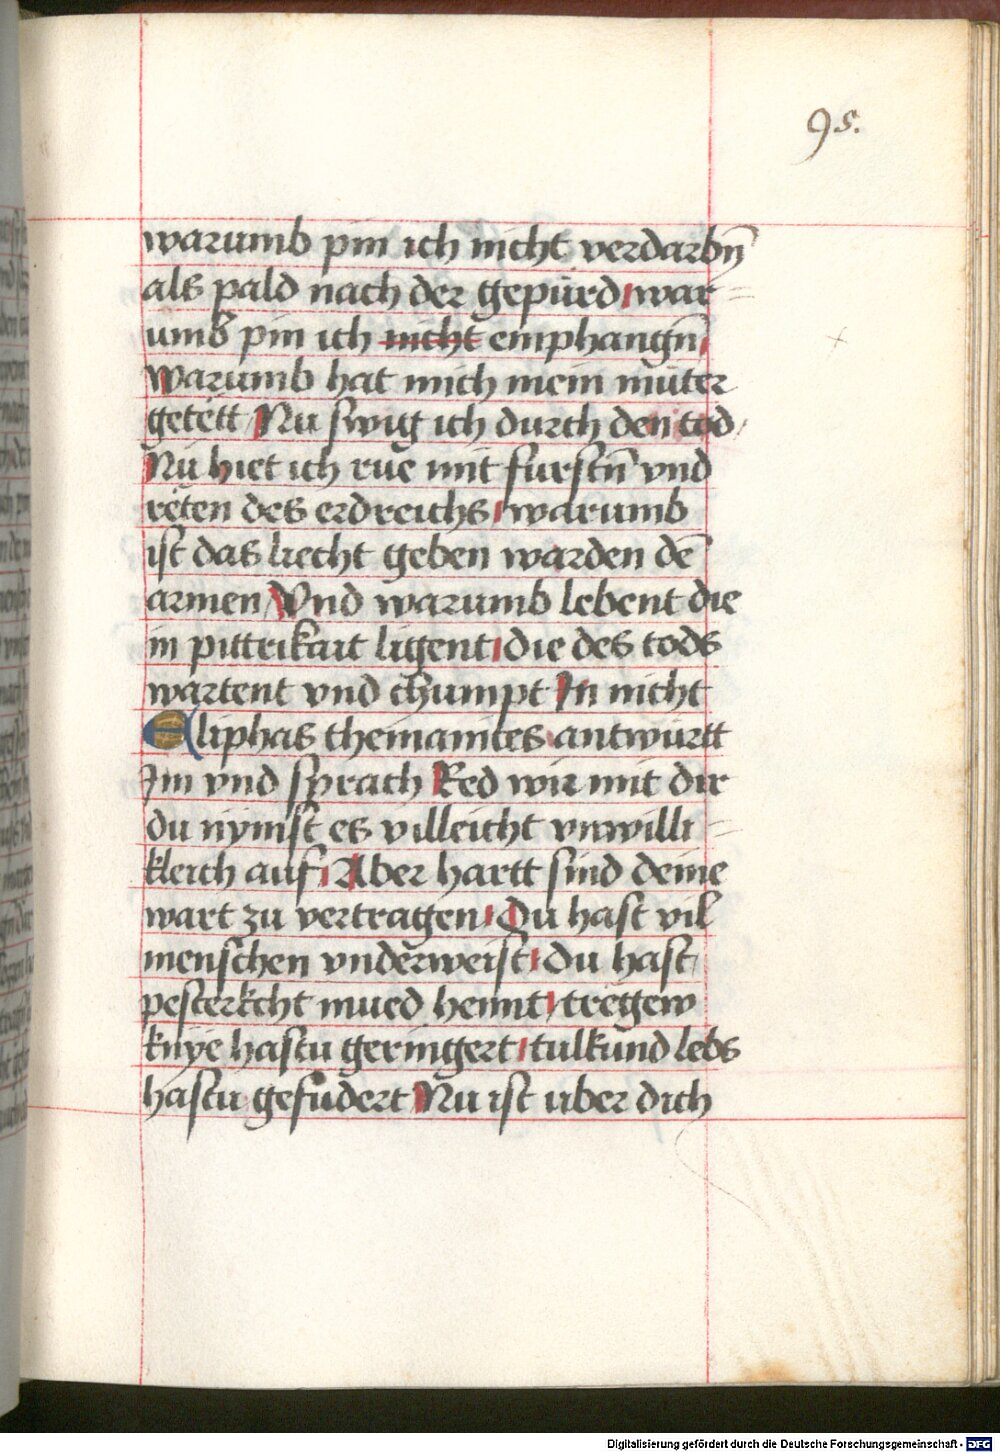 95.
warumb pin ich nicht verdarbn̄
als pald nach der gepürd war=
umb pin ich nicht emphangn̄
Warumb hat mich mein müter
getëtt Nu swig ich durch den tod
Nü hiet ich rüe mit fürstn̄ vnd
rëten des erdreichs warumb
ist das liecht geben warden dē
armen Vnd warumb lebent die
in pittrikait ligent die des tods
wartent vnd chumpt In nicht
Eliphas themanites antwürtt
Im vnd sprach Red wir mit dir
du nymst es villeicht vnwilli=
kleich auf Aber hartt sind deine
wart zu vertragen Du hast vil
menschen vnderweist du hast
pesterkcht mued hennt tregew
knye hastu geringert tulkund lebs
hastu gefudert Nu ist uber dich
Digitalisierung gefördert durch die Deutsche Forschungsgemeinschaft - DFG